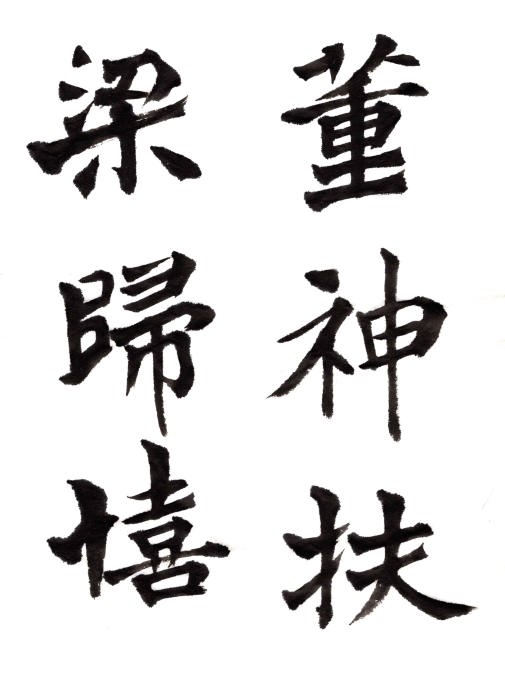 董神扶
梁歸憘